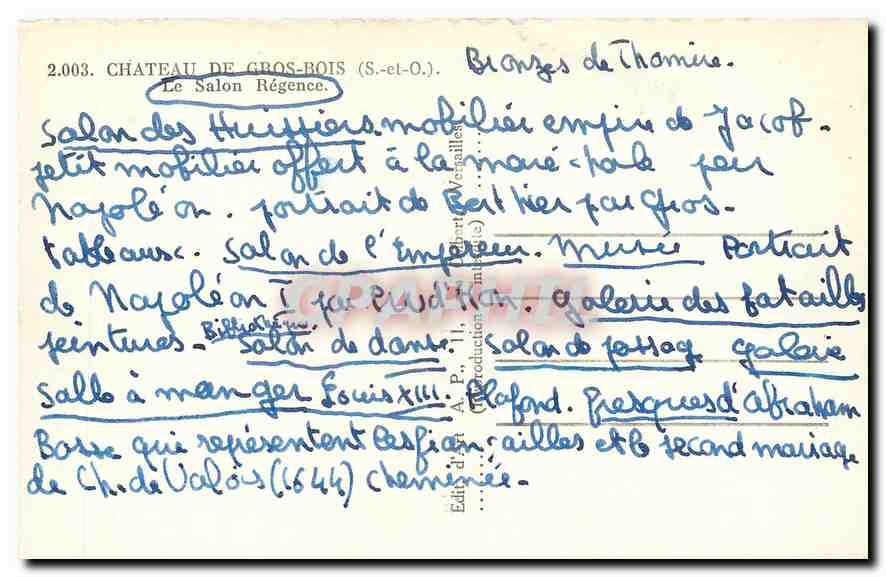 2.003. CHATEAU DE GROS-BOIS (S.-et-O.). Bronzes de Thomire.
Le Salon Régence.
Salon des Huissiers. mobilier empire de Jacob -
petit mobilier offert à la maréchale par
Napoléon. portrait de Berthier par Gros -
tableaux. Salon de l'Empereur. Musée Portrait
de Napoléon I par Prud'Hon. Galerie des batailles
peintures - Bibliothèque. Salon de danse. Salon de passage galerie
Salle à manger Louis XIII. Plafond. fresques d'Abraham
Bosse qui représentent les fiançailles et le second mariage
de Ch. de Valois (1644) cheminée -
Edit. d'Art A. P., 11, Versailles
(Reproduction interdite)